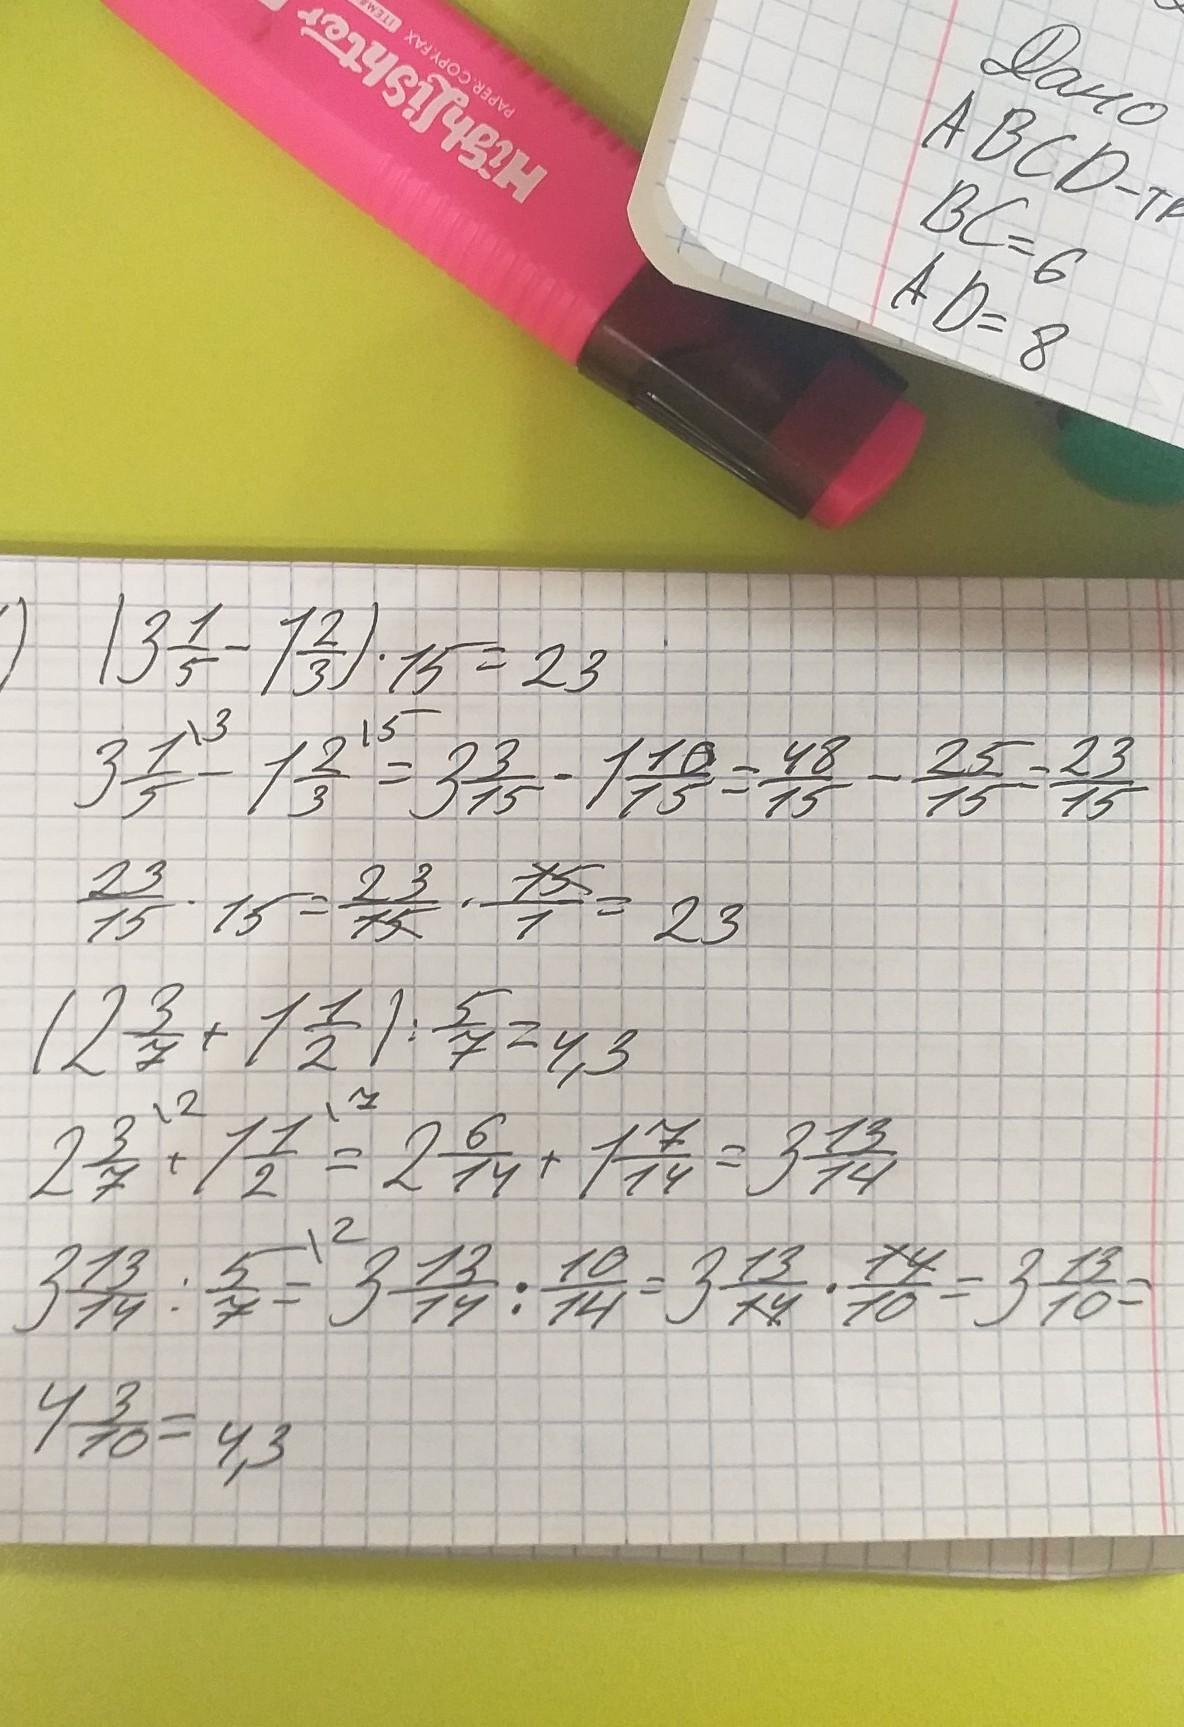 HighliShter
PAPER.COPY.FAX
Дано
ABCD-тр
BC=6
AD=8
) (3 1/5 - 1 2/3) · 15 = 23
3 1/5 \3 - 1 2/3 \5 = 3 3/15 - 1 10/15 = 48/15 - 25/15 = 23/15
23/15 · 15 = 23/15 · 15/1 = 23
(2 3/7 + 1 1/2) : 5/7 = 4,3
2 3/7 \2 + 1 1/2 \7 = 2 6/14 + 1 7/14 = 3 13/14
3 13/14 : 5/7 \2 = 3 13/14 : 10/14 = 3 13/14 · 14/10 = 3 13/10 =
4 3/10 = 4,3